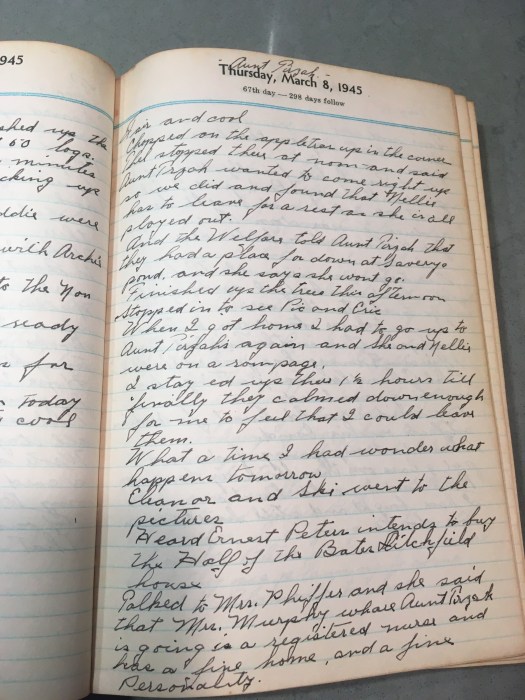 945
shed up the
60 logs.
minutes
cking up
ddie were
with Archie
to the Non
ready
s for
Today
cool
- Aunt Tirzah -
Thursday, March 8, 1945
67th day — 298 days follow
Fair and cool
Chopped on the appletree up in the corner
Ethel stopped their at noon and said
Aunt Tirzah wanted to come right up
so we did and found that Nellie
has to leave for a rest as she is all
played out.
And the Welfare told Aunt Tirzah that
they had a place for down at Saverys
pond, and she says she wont go.
Finished up the trees this afternoon
Stopped in to see Pic and Eric
When I got home I had to go up to
Aunt Tirzahs again and She and Nellie
were on a rampage,
I stay ed up there 1½ hours till
finally they calmed down enough
for me to feel that I could leave
them.
What a time I had wonder what
happens tomorrow
Eleanor and Ski went to the
pictures
Heard Ernest Peteu intends to buy
the Half of the Bates Litchfield
house
Talked to Mrs. Phiffer and she said
that Mrs. Murphy whare Aunt Tirzah
is going is a registered nurse and
has a fine home, and a fine
Personality.